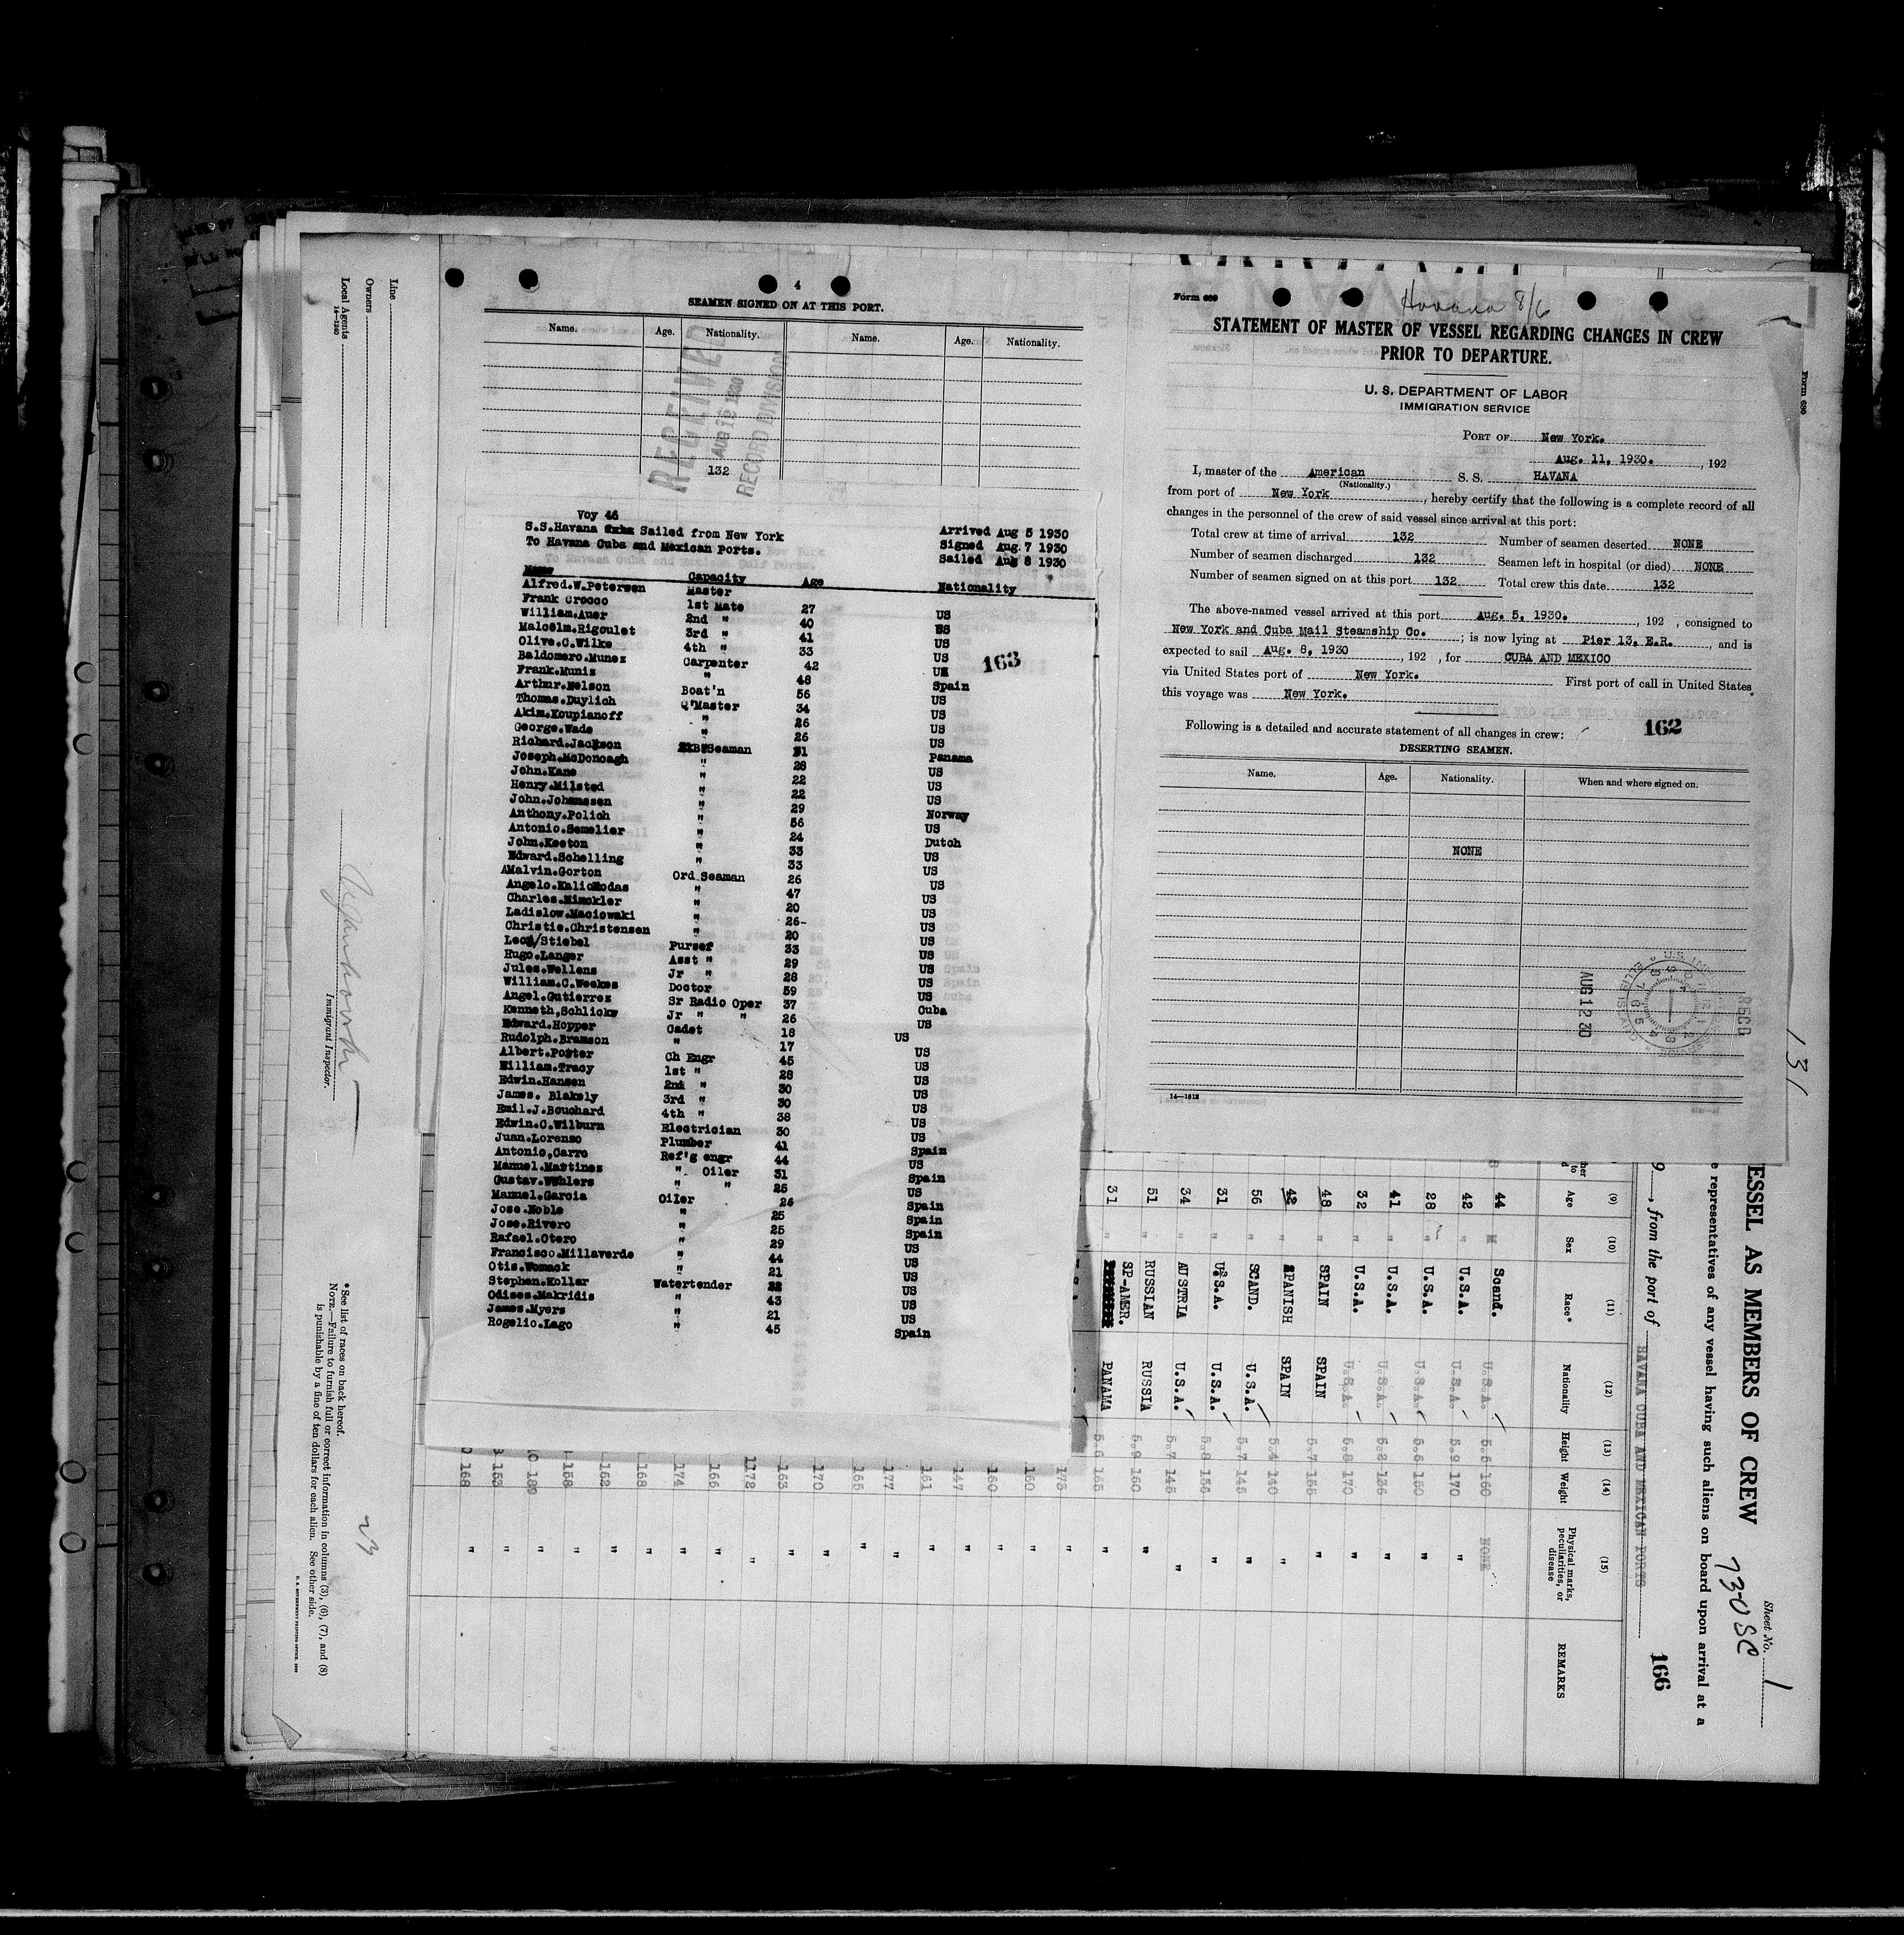 4
SEAMEN SIGNED ON AT THIS PORT.
Name. Age. Nationality. Name. Age. Nationality.
RECEIVED
AUG 12 1930
RECORD DIVISION
132
Voy 46
S.S.Havana Sailed from New York Arrived Aug 5 1930
To Havana Cuba and Mexican Ports. Signed Aug. 7 1930
Sailed Aug 8 1930
Name Capacity Age Nationality
Alfred.W.Petersen Master
Frank Crocco 1st Mate 27 US
William.Auer 2nd " 40 US
Malcolm.Rigoulet 3rd " 41 US
Olive.C.Wilke 4th " 33 US
Baldomero.Munez Carpenter 42 US
Frank.Muniz " 48 Spain
Arthur.Nelson Boat'n 56 US
Thomas.Duylich Q'Master 34 US
Akim.Koupianoff " 26 US
George.Wade " 26 US
Richard.Jackson Seaman 31 Panama
Joseph.McDonoagh " 28 US
John.Kane " 22 US
Henry.Milsted " 22 US
John.Johanssen " 29 Norway
Anthony.Polich " 56 US
Antonio.Semelier " 24 Dutch
John.Keeton " 33 US
Edward.Schelling " 33 US
AMalvin.Gorton Ord Seaman 26 US
Angelo.Kaliomodas " 47 US
Charles.Minckler " 20 US
Ladislow.Maciowski " 26- US
Christie.Christensen " 20 US
Leo/Stiebel Purser 33 US
Hugo.Langer Asst " 29 US
Jules.Wellens Jr " 28 US
William.C.Weekes Doctor 59 US
Angel.Gutierrez Sr Radio Oper 37 Cuba
Kenneth,Schlicks Jr " " 26 US
Edward.Hopper Cadet 18 US
Rudolph.Bramson " 17 US
Albert.Poster Ch Engr 45 US
William.Tracy 1st " 28 US
Edwin.Hansen 2nd " 30 US
James. Blakely 3rd " 30 US
Emil.J.Bouchard 4th " 38 US
Edwin.C.Wilburn Electrician 30 US
Juan.Lorenzo Plumber 41 Spain
Antonio,Carro Ref'g engr 44 US
Manuel.Martines " Oiler 31 Spain
Gustav.Wuhlers " " 25 US
Manuel.Garcia Oiler 26 Spain
Jose.Noble " 25 Spain
Jose.Rivero " 25 Spain
Rafael.Otero " 29 US
Francisco.Millaverde " 44 US
Otis.Womack " 21 US
Stephen.Kollar Watertender US
Odises.Makridis " 43 US
James.Myers " 21 US
Rogelio.Lago " 45 Spain
163
Form 689
Havana 8/6
STATEMENT OF MASTER OF VESSEL REGARDING CHANGES IN CREW
PRIOR TO DEPARTURE.
U. S. DEPARTMENT OF LABOR
IMMIGRATION SERVICE
PORT OF New York.
Aug. 11, 1930. , 192
I, master of the American S. S. HAVANA
(Nationality.)
from port of New York , hereby certify that the following is a complete record of all
changes in the personnel of the crew of said vessel since arrival at this port:
Total crew at time of arrival 132 Number of seamen deserted NONE
Number of seamen discharged 132 Seamen left in hospital (or died) NONE
Number of seamen signed on at this port 132 Total crew this date 132
The above-named vessel arrived at this port Aug. 5, 1930. , 192 , consigned to
New York and Cuba Mail Steamship Co. ; is now lying at Pier 13, E.R. , and is
expected to sail Aug. 8, 1930 , 192 , for CUBA AND MEXICO
via United States port of New York. First port of call in United States
this voyage was New York.
Following is a detailed and accurate statement of all changes in crew:
162
DESERTING SEAMEN.
Name. Age. Nationality. When and where signed on.
NONE
AUG 12 30
REC'D
14—1612
131
Form 690
Line
Owners
Local Agents
14—1240
Immigrant Inspector.
*See list of races on back hereof.
NOTE.—Failure to furnish full or correct information in columns (3), (6), (7), and (8)
is punishable by a fine of ten dollars for each alien. See other side.
U. S. GOVERNMENT PRINTING OFFICE
23
Sheet No. 1
730SC
ESSEL AS MEMBERS OF CREW
e representatives of any vessel having such aliens on board upon arrival at a
166
9 , from the port of HAVANA CUBA AND MEXICAN PORTS
(9) (10) (11) (12) (13) (14) (15)
Age Sex Race* Nationality Height Weight Physical marks, peculiarities, or disease REMARKS
44 M Scand. U.S.A. 5.5 160 NONE
42 " U.S.A. U.S.A. 5.9 170 "
28 " U.S.A. U.S.A. 5.6 150 "
41 " U.S.A. U.S.A. 5.2 136 "
32 " U.S.A. U.S.A. 5.8 170 "
48 " SPAIN SPAIN 5.7 155 "
42 " SPANISH SPAIN 5.4 140 "
56 " SCAND. U.S.A. 5.7 145 "
31 " U.S.A. U.S.A. 5.8 155 "
34 " AUSTRIA U.S.A. 5.7 145 "
51 " RUSSIAN RUSSIA 5.9 160 "
31 " SP-AMER. PANAMA 5.6 165 "
173 "
150 "
160 "
147 "
161 "
177 "
165 "
170 "
163 "
172 "
166 "
174 "
168 "
152 "
158 "
189 "
153 "
168 "